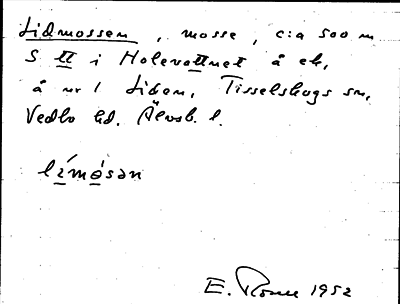 Lidmossen, mosse, c:a 500 m
S tt i Holevattnet å ek,
å nr 1 Liden, Tisselskogs sn,
Vedbo hd. Älvsb. l.
lìmósən
E. 1952